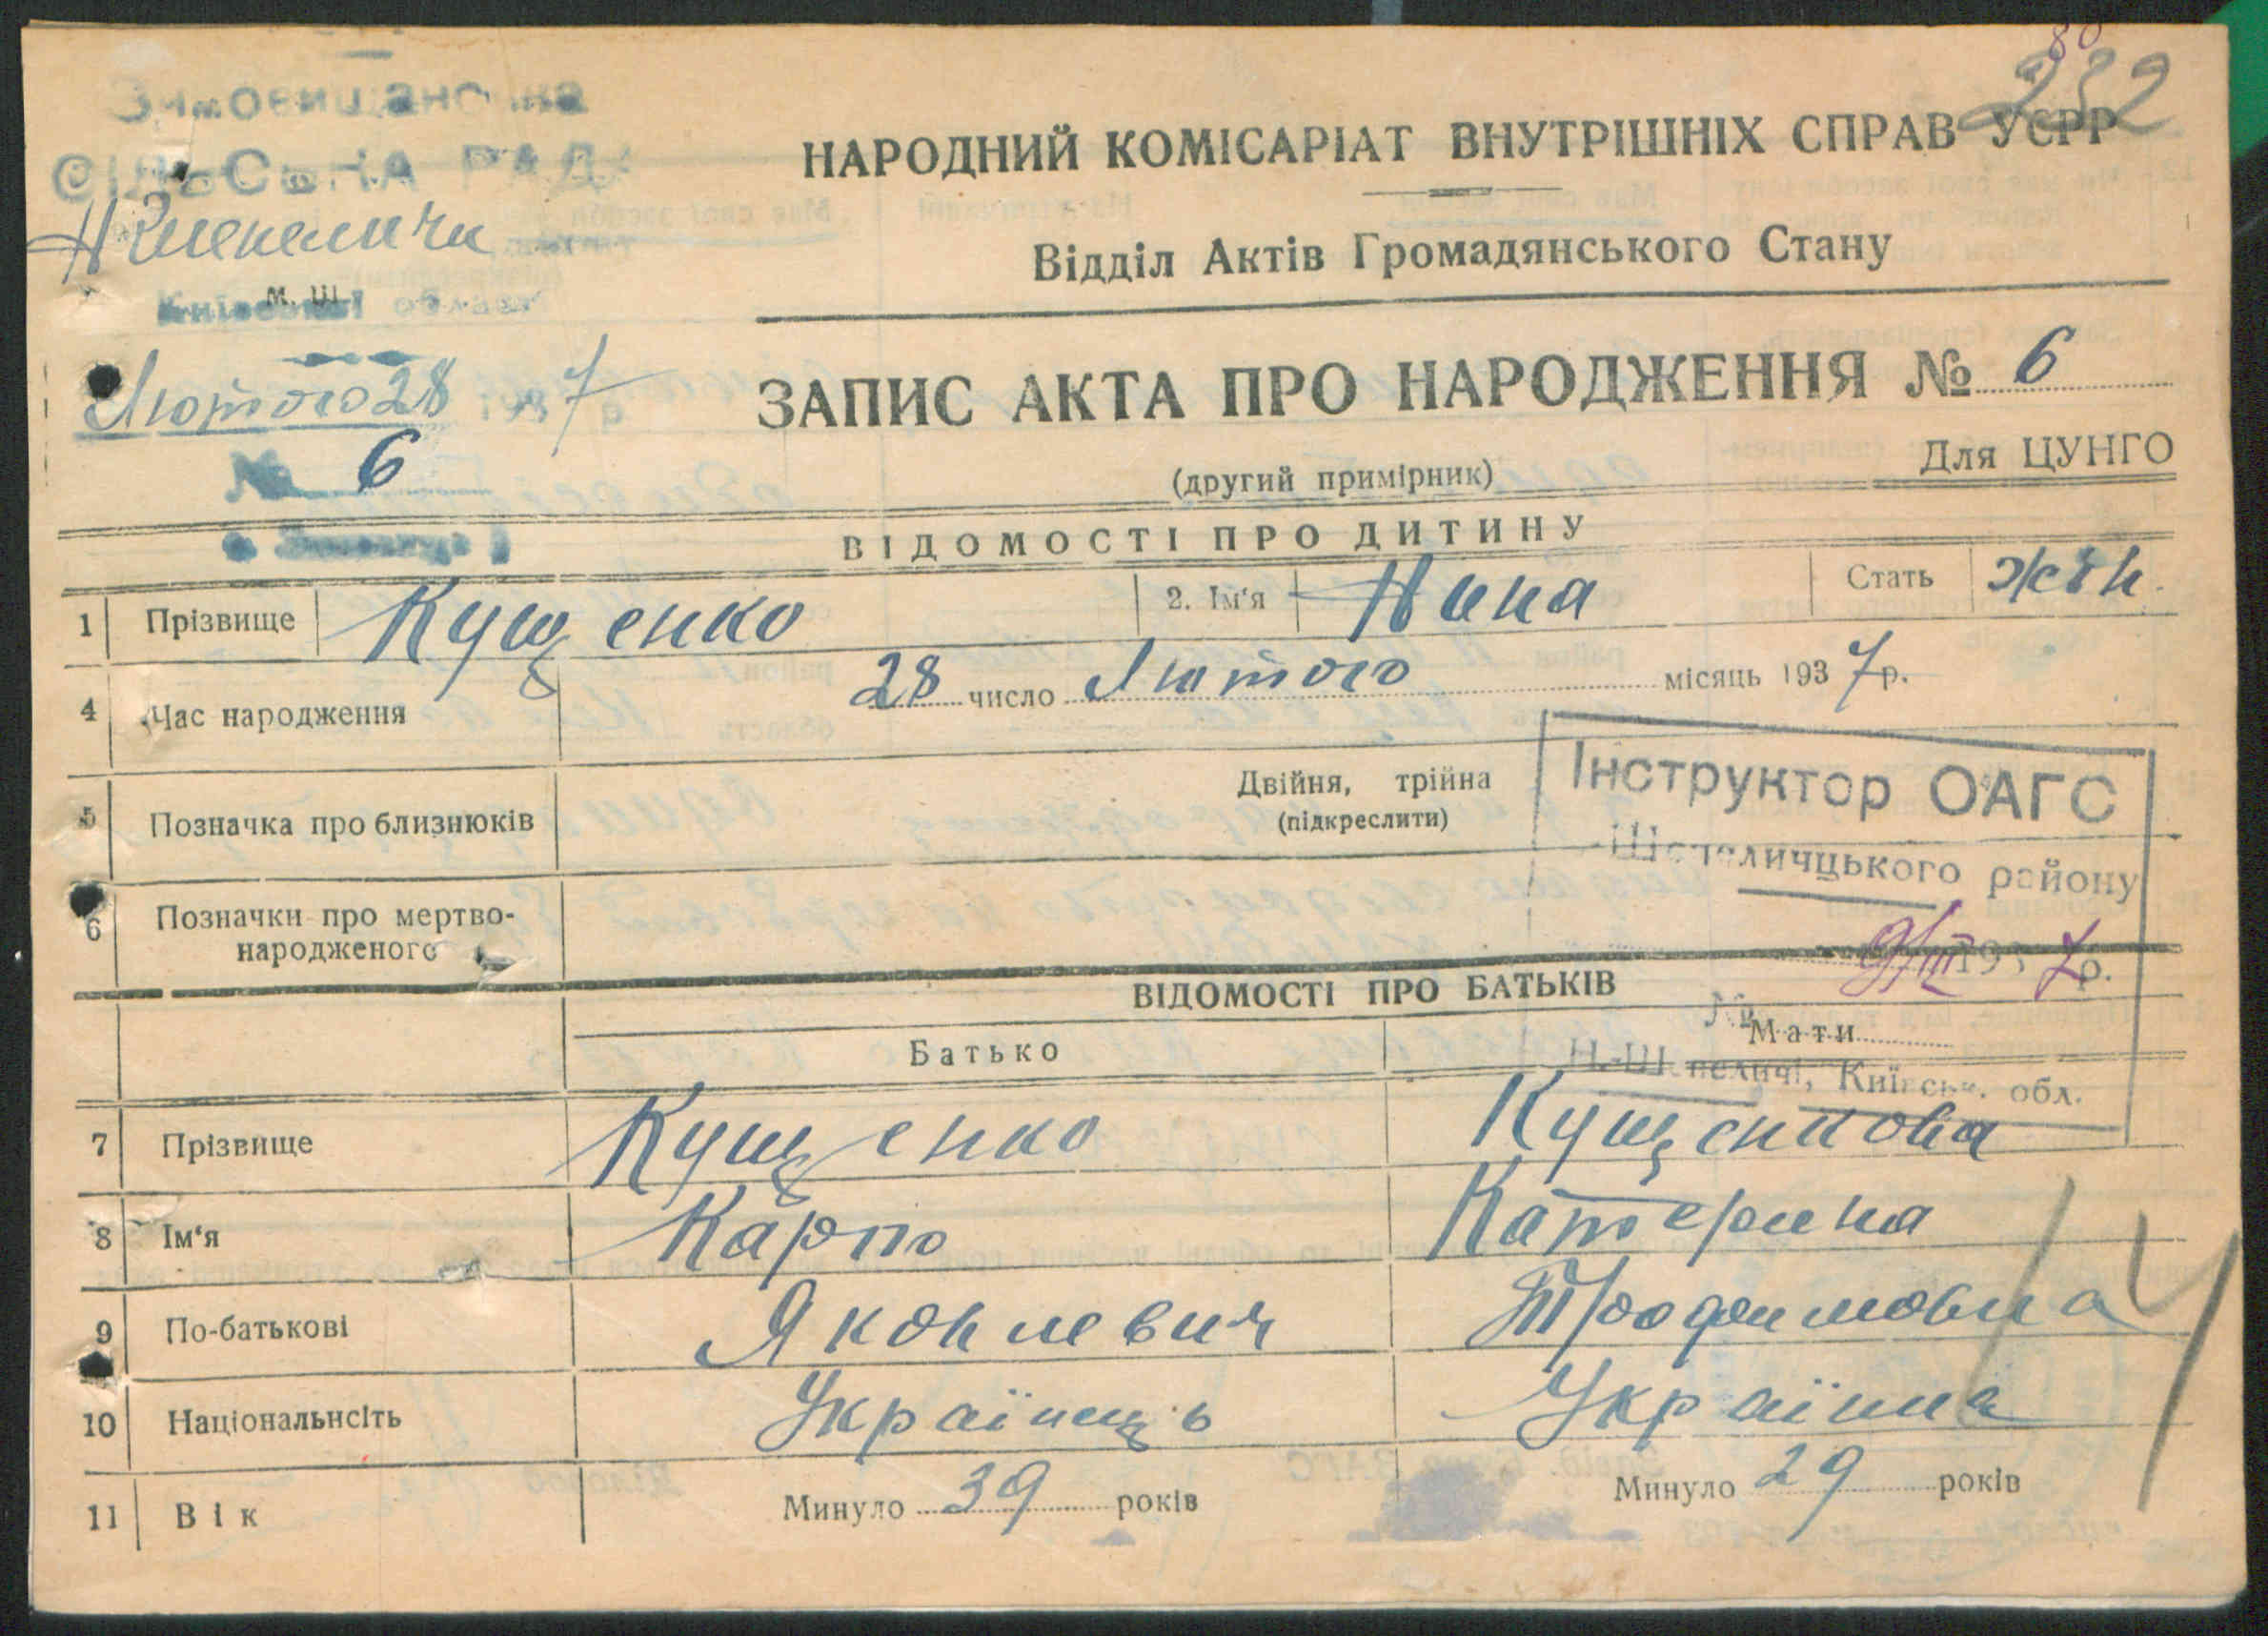 80
232
Зимовищанська
СІЛЬСЬКА РАДА
Н Шепеличи
М. Ш.
Київської області
Лютого 28 1937 р
№ 6
НАРОДНИЙ КОМІСАРІАТ ВНУТРІШНІХ СПРАВ УСРР
Відділ Актів Громадянського Стану
ЗАПИС АКТА ПРО НАРОДЖЕННЯ № 6
(другий примірник)
Для ЦУНГО
ВІДОМОСТІ ПРО ДИТИНУ
1 Прізвище Кущенко 2. Ім'я Нина Стать жін.
4 Час народження 28 число Лютого місяць 1937 р.
5 Позначка про близнюків Двійня, трійна
(підкреслити)
Інструктор ОАГС
Шепеличцького району
9/III 1937 р.
№
Н-Шепеличі, Київськ. обл.
6 Позначки про мертво-
народженого
ВІДОМОСТІ ПРО БАТЬКІВ
Батько Мати
7 Прізвище Кущенко Кущенкова
8 Ім'я Карпо Катерина
9 По-батькові Яковлевич Трофимовна
10 Національнсіть Українець Українка
11 Вік Минуло 39 років Минуло 29 років